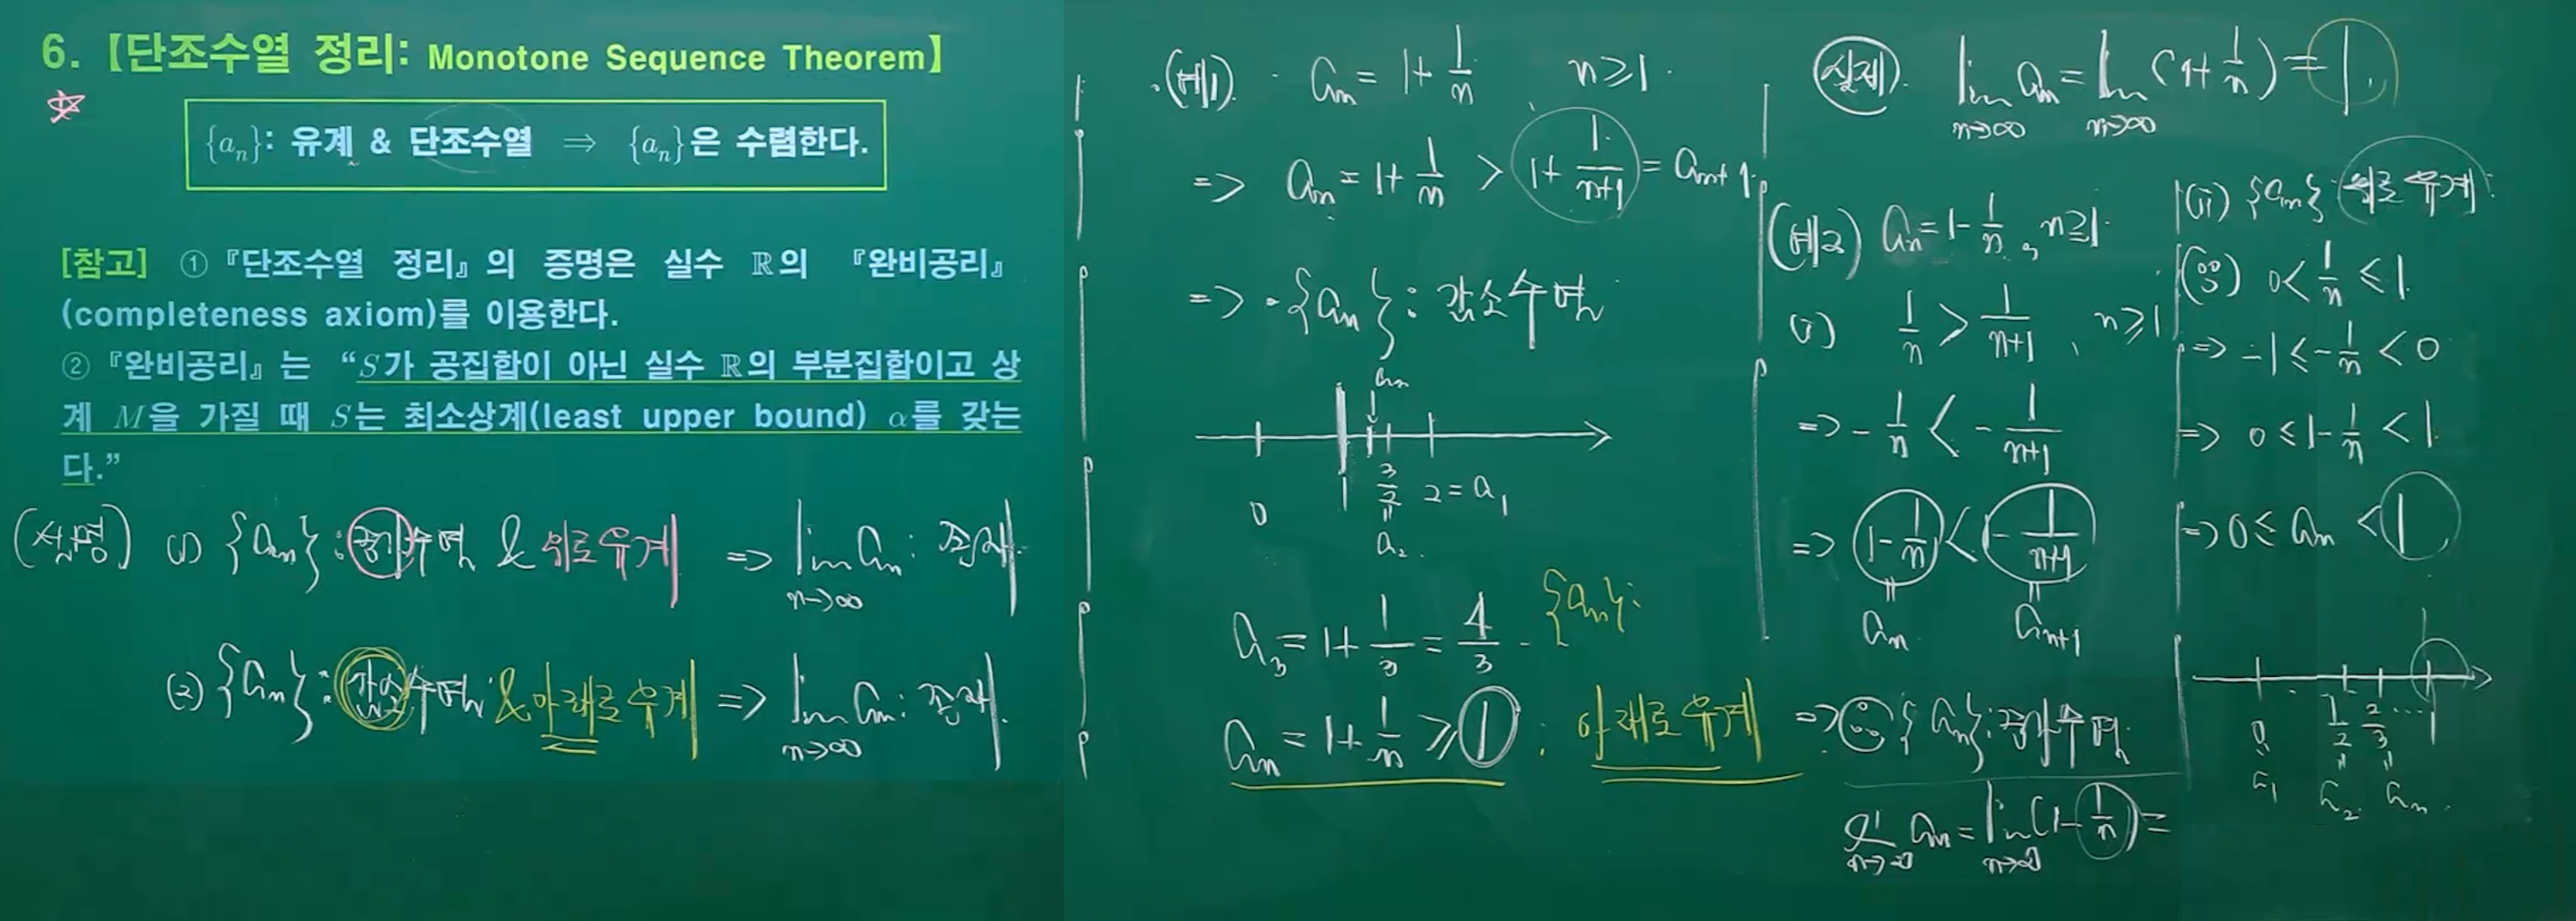 6.【단조수열 정리: Monotone Sequence Theorem】
{aₙ}: 유계 & 단조수열 ⇒ {aₙ}은 수렴한다.
[참고] ①『단조수열 정리』의 증명은 실수 ℝ의 『완비공리』
(completeness axiom)를 이용한다.
②『완비공리』는 “S가 공집합이 아닌 실수 ℝ의 부분집합이고 상
계 M을 가질 때 S는 최소상계(least upper bound) α를 갖는
다.”
(설명) (1) {aₙ} : 증가수열 & 위로유계 => lim aₙ : 존재
n→∞
(2) {aₙ} : 감소수열 & 아래로유계 => lim aₙ : 존재.
n→∞
(예1) aₙ = 1+1/n n≥1.
=> aₙ = 1+1/n > 1+1/(n+1) = aₙ₊₁.
=> {aₙ} : 감소수열
aₙ
0 1 3/2 2 = a₁
= a₂.
a₃ = 1+1/3 = 4/3 {aₙ}:
aₙ = 1+1/n ≥ 1 : 아래로유계
(실제) lim aₙ = lim (1+1/n) = 1.
n→∞ n→∞
(예2) aₙ = 1-1/n, n≥1.
(i) 1/n > 1/(n+1), n≥1
=> -1/n < -1/(n+1)
=> 1-1/n < 1-1/(n+1)
= aₙ = aₙ₊₁
=> {aₙ} : 증가수열
lim aₙ = lim (1-1/n) =
n→∞ n→∞
(ii) {aₙ} 위로 유계.
(∵) 0 < 1/n ≤ 1.
=> -1 ≤ -1/n < 0
=> 0 ≤ 1-1/n < 1.
=> 0 ≤ aₙ < 1
0 1/2 2/3 ... 1
= a₁ = a₂ = aₙ.